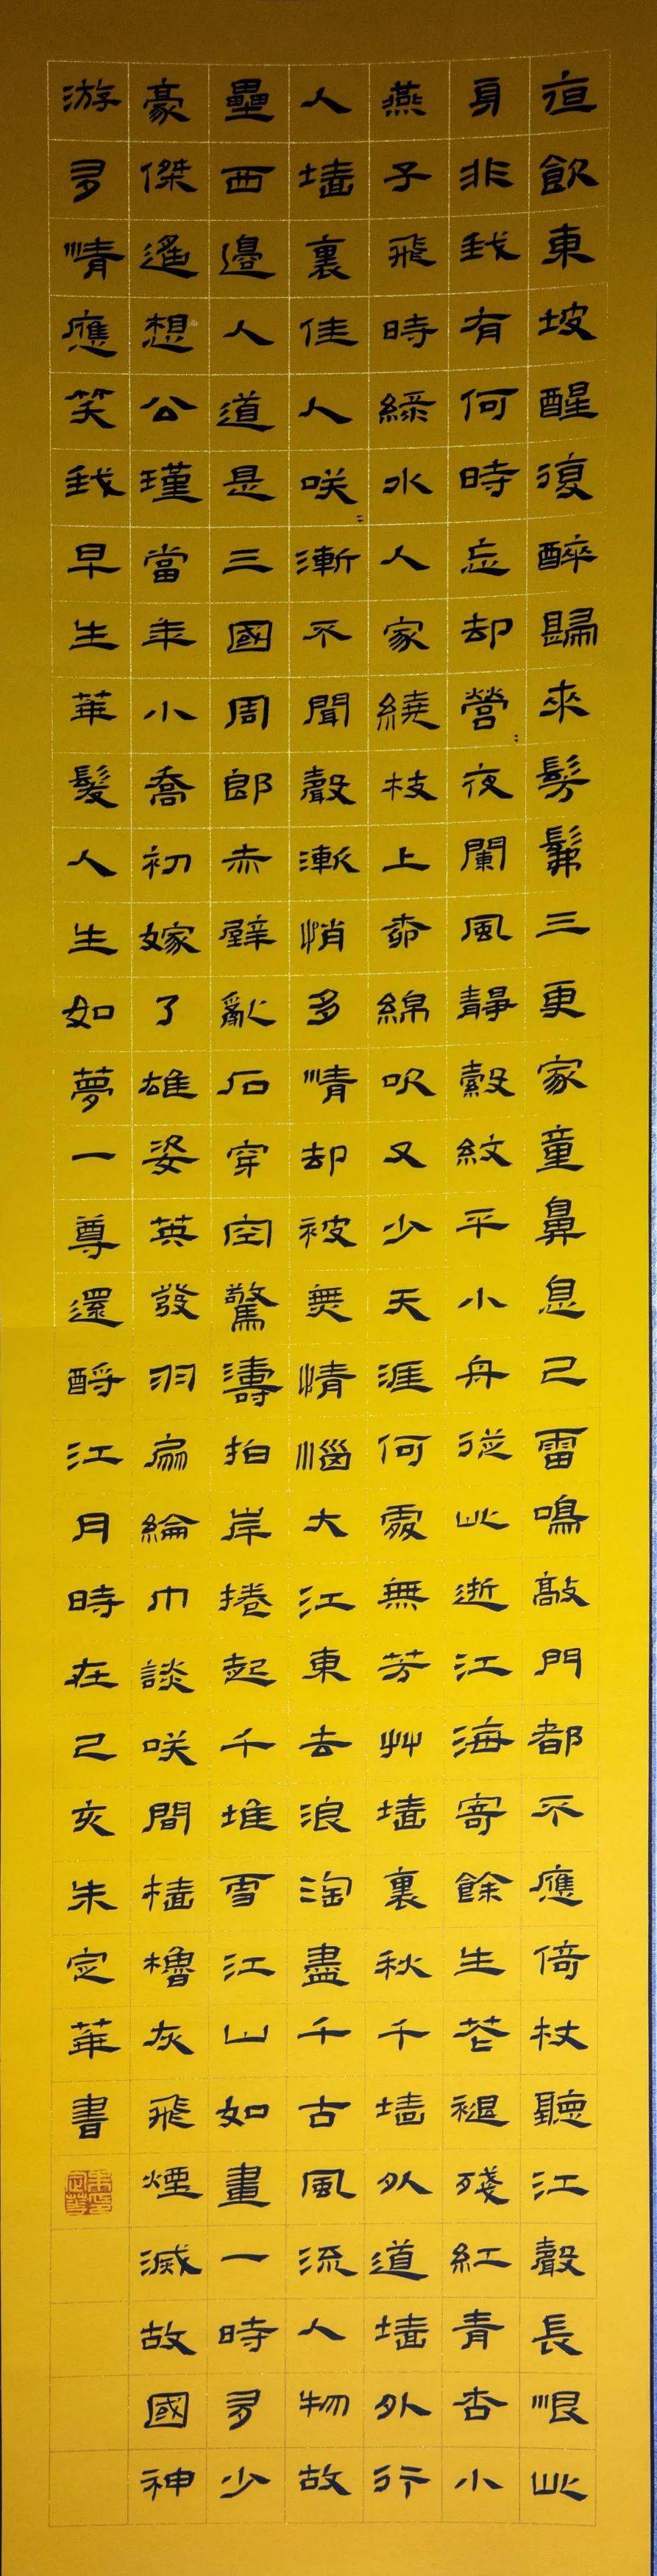 夜飲東坡醒復醉歸來髣髴三更家童鼻息已雷鳴敲門都不應倚杖聽江聲長恨此
身非我有何時忘却營〻夜闌風靜縠紋平小舟從此逝江海寄餘生花褪殘紅青杏小
燕子飛時綠水人家繞枝上柳綿吹又少天涯何處無芳艸墻裏秋千墻外道墻外行
人墻裏佳人咲〻漸不聞聲漸悄多情却被無情惱大江東去浪淘盡千古風流人物故
壘西邊人道是三國周郎赤壁亂石穿空驚濤拍岸捲起千堆雪江山如畫一時多少
豪傑遙想公瑾當年小喬初嫁了雄姿英發羽扇綸巾談咲間檣櫓灰飛煙滅故國神
游多情應笑我早生華髮人生如夢一尊還酹江月時在己亥朱定華書